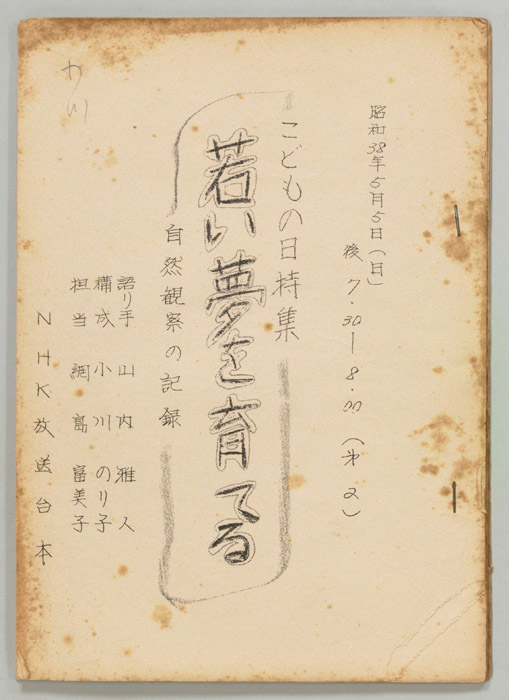 昭和38年5月5日(日)
後 7.30—8.00 (第2)
こどもの日特集
若い夢を育てる
自然観察の記録
語り手 山内雅人
構成 小川のり子
担当 網島富美子
NHK放送台本